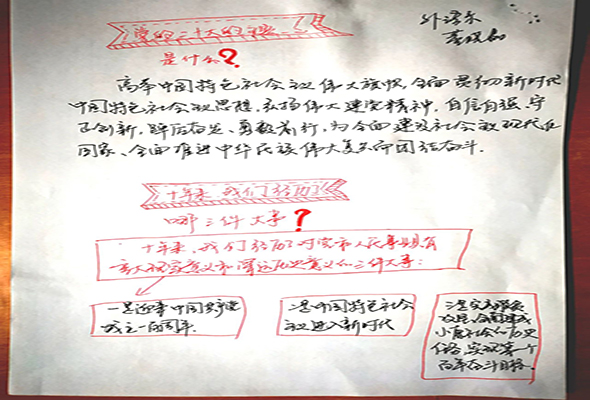 党的二十大的主题
外语系
是什么?
高举中国特色社会主义伟大旗帜,全面贯彻新时代
中国特色社会主义思想,弘扬伟大建党精神,自信自强、守
正创新,踔厉奋发、勇毅前行,为全面建设社会主义现代化
国家、全面推进中华民族伟大复兴而团结奋斗.
十年来,我们经历了
哪三件大事?
十年来,我们经历了对党和人民事业具有
重大现实意义和深远历史意义的三件大事:
一是迎来中国共产党
成立一百周年
二是中国特色社会
主义进入新时代
三是完成脱贫
攻坚、全面建成
小康社会的历史
任务,实现第一个
百年奋斗目标.